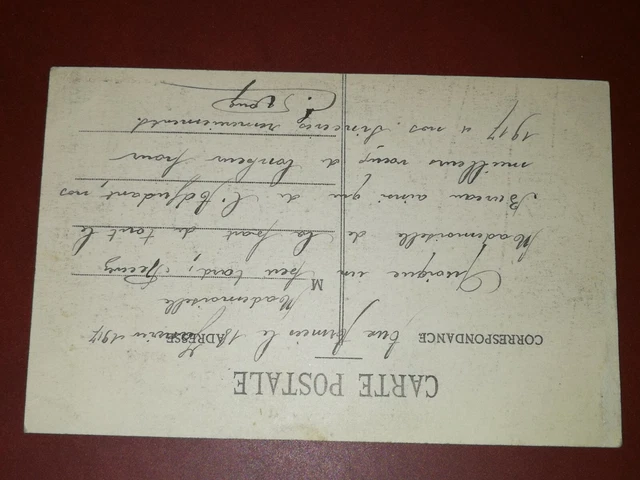 CARTE POSTALE
CORRESPONDANCE
ADRESSE
Aux Armées le 18 Janvier 1917
Mademoiselle
M
Quoique un peu tard, 
Mademoiselle de la part de tout le
Bureau ainsi que de l'Adjudant, nos
meilleurs vœux de bonheur pour
1917 et nos sincères remerciements.